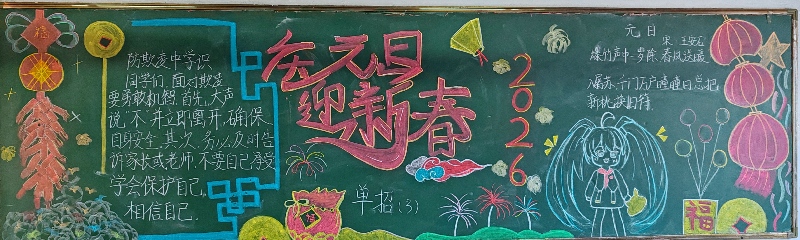 防欺凌中学识
同学们,面对欺凌
要勇敢机智.首先,大声
说"不"并立即离开,确保
自身安全.其次,务必及时告
诉家长或老师,不要自己承受
学会保护自己,
相信自己.
庆元旦
迎新春
2026
单招(3)
元日
宋·王安石
爆竹声中一岁除,春风送暖
入屠苏.千门万户曈曈日,总把
新桃换旧符.
福